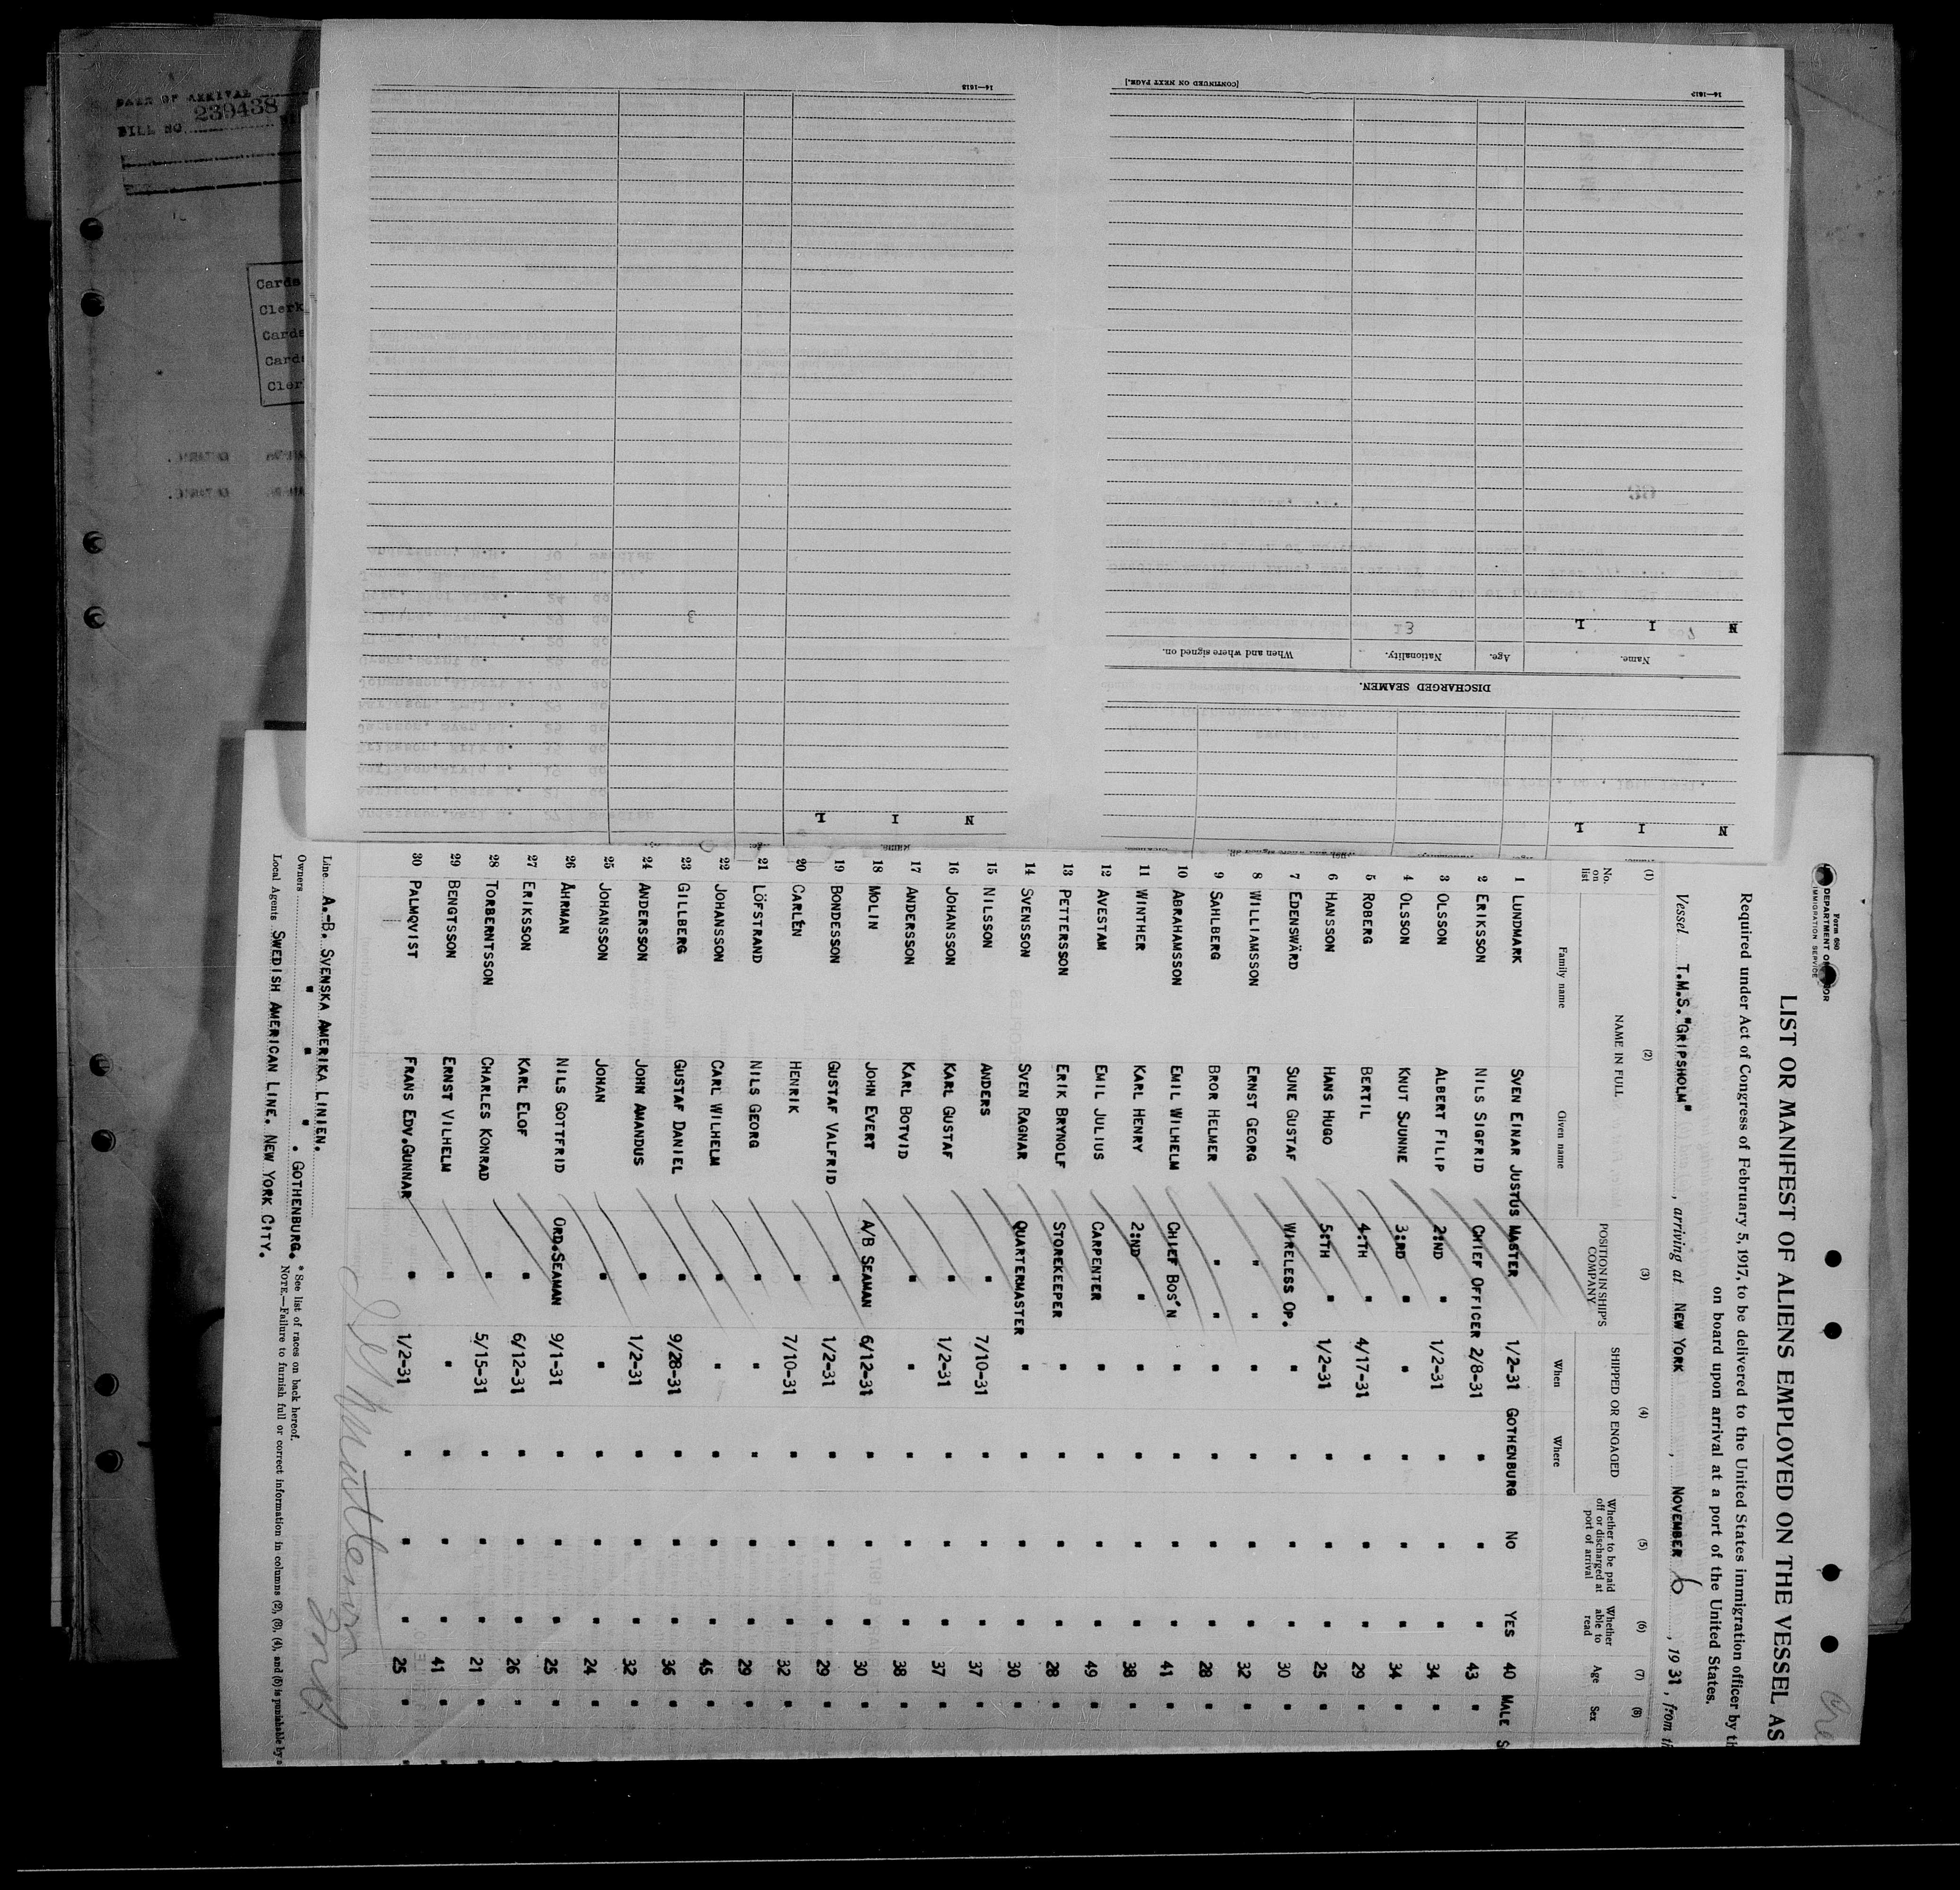 Form 680
DEPARTMENT OF LABOR
IMMIGRATION SERVICE
LIST OR MANIFEST OF ALIENS EMPLOYED ON THE VESSEL AS
Required under Act of Congress of February 5, 1917, to be delivered to the United States immigration officer by th
on board upon arrival at a port of the United States.
Vessel T.M.S. "GRIPSHOLM" , arriving at NEW YORK , NOVEMBER 6 , 1931, from th
(1) (2) (3) (4) (5) (6) (7) (8)
No. on list NAME IN FULL POSITION IN SHIP'S COMPANY SHIPPED OR ENGAGED Whether to be paid off or discharged at port of arrival Whether able to read Age Sex
Family name Given name When Where
1 LUNDMARK SVEN EINAR JUSTUS MASTER 1/2-31 GOTHENBURG NO YES 40 MALE S
2 ERIKSSON NILS SIGFRID CHIEF OFFICER 2/8-31 " " " 43 "
3 OLSSON ALBERT FILIP 2:ND " 1/2-31 " " " 34 "
4 OLSSON KNUT SJUNNE 3:RD " " " " " 34 "
5 ROBERG BERTIL 4:TH " 4/17-31 " " " 29 "
6 HANSSON HANS HUGO 5:TH " 1/2-31 " " " 25 "
7 EDENSWÄRD SUNE GUSTAF WIRELESS OP. " " " " 30 "
8 WILLIAMSSON ERNST GEORG " " " " " " 32 "
9 SAHLBERG BROR HELMER " " " " " " 28 "
10 ABRAHAMSSON EMIL WILHELM CHIEF BOS'N " " " " 41 "
11 WINTHER KARL HENRY 2:ND " " " " " 38 "
12 AVESTAM EMIL JULIUS CARPENTER " " " " 49 "
13 PETTERSSON ERIK BRYNOLF STOREKEEPER " " " " 28 "
14 SVENSSON SVEN RAGNAR QUARTERMASTER " " " " 30 "
15 NILSSON ANDERS " 7/10-31 " " " 37 "
16 JOHANSSON KARL GUSTAF " 1/2-31 " " " 37 "
17 ANDERSSON KARL BOTVID " " " " " 38 "
18 MOLIN JOHN EVERT A/B SEAMAN 6/12-31 " " " 30 "
19 BONDESSON GUSTAF VALFRID " 1/2-31 " " " 29 "
20 CARLÉN HENRIK " 7/10-31 " " " 32 "
21 LÖFSTRAND NILS GEORG " " " " " 29 "
22 JOHANSSON CARL WILHELM " " " " " 45 "
23 GILLBERG GUSTAF DANIEL " 9/28-31 " " " 36 "
24 ANDERSSON JOHN AMANDUS " 1/2-31 " " " 32 "
25 JOHANSSON JOHAN " " " " " 24 "
26 ÅHRMAN NILS GOTTFRID ORD.SEAMAN 9/1-31 " " " 25 "
27 ERIKSSON KARL ELOF " 6/12-31 " " " 26 "
28 TORBERNTSSON CHARLES KONRAD " 5/15-31 " " " 21 "
29 BENGTSSON ERNST VILHELM " " " " " 41 "
30 PALMQVIST FRANS EDV.GUNNAR " 1/2-31 " " " 25 "
Line A.-B. SVENSKA AMERIKA LINIEN.
Owners " " " . GOTHENBURG.
Local Agents SWEDISH AMERICAN LINE. NEW YORK CITY.
* See list of races on back hereof.
NOTE.—Failure to furnish full or correct information in columns (2), (3), (4), and (5) is punishable by a
N I L
DISCHARGED SEAMEN.
Name. Age. Nationality. When and where signed on.
N I L
13
3
[CONTINUED ON NEXT PAGE.]
14—1613
N I L
Name.
14—1613
BILL NO 239438
DATE OF ARRIVAL
Cards
Clerk
Cards
Cards
Cler